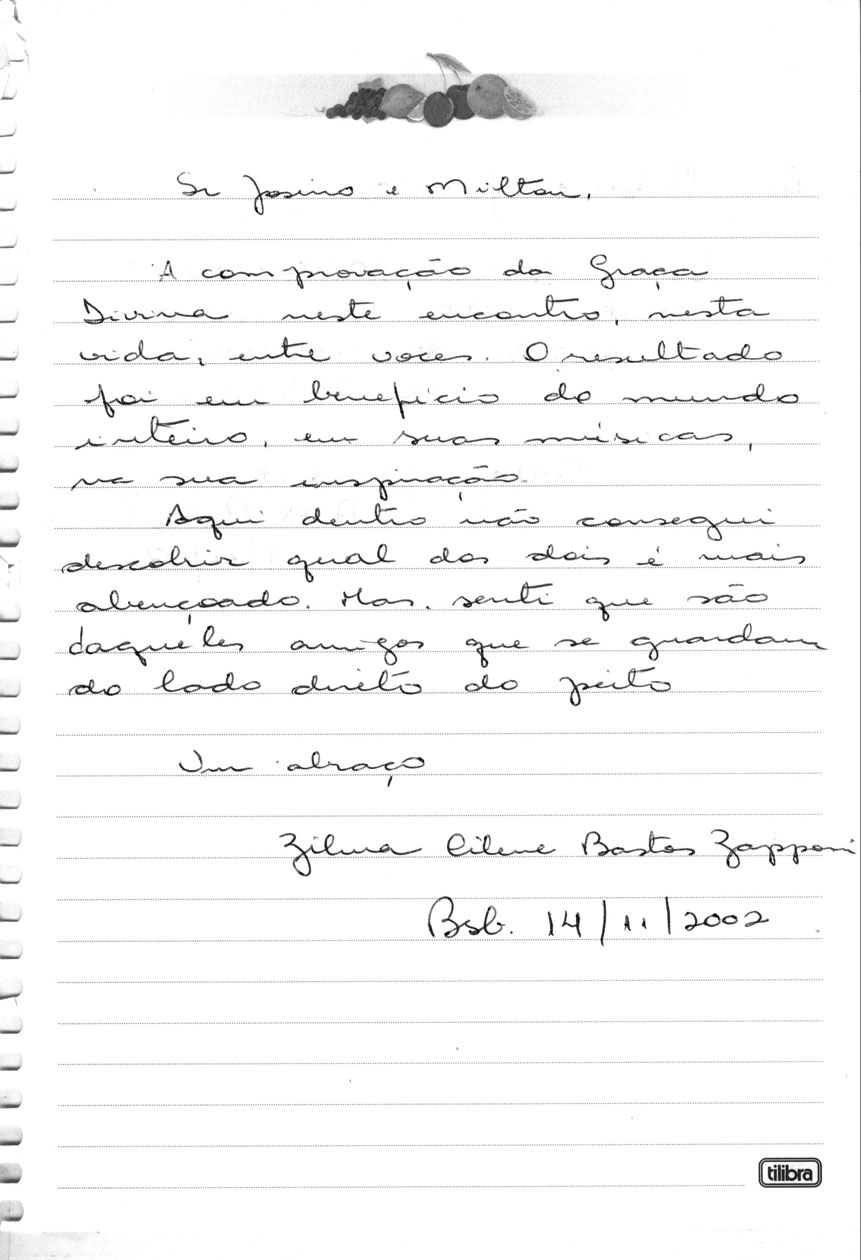 Sr Josino e Milton,
A comprovação da Graça
Divina neste encontro, nesta
vida, entre voces. O resultado
foi em beneficio do mundo
inteiro, em suas músicas,
na sua inspiração.
Aqui dentro não consegui
descobrir qual dos dois é mais
abençoado. Mas, senti que são
daqueles amigos que se guardam
do lado direito do peito
Um abraço
Zilma Cilene Bastos Zapponi
Bsb. 14/11/2002
tilibra